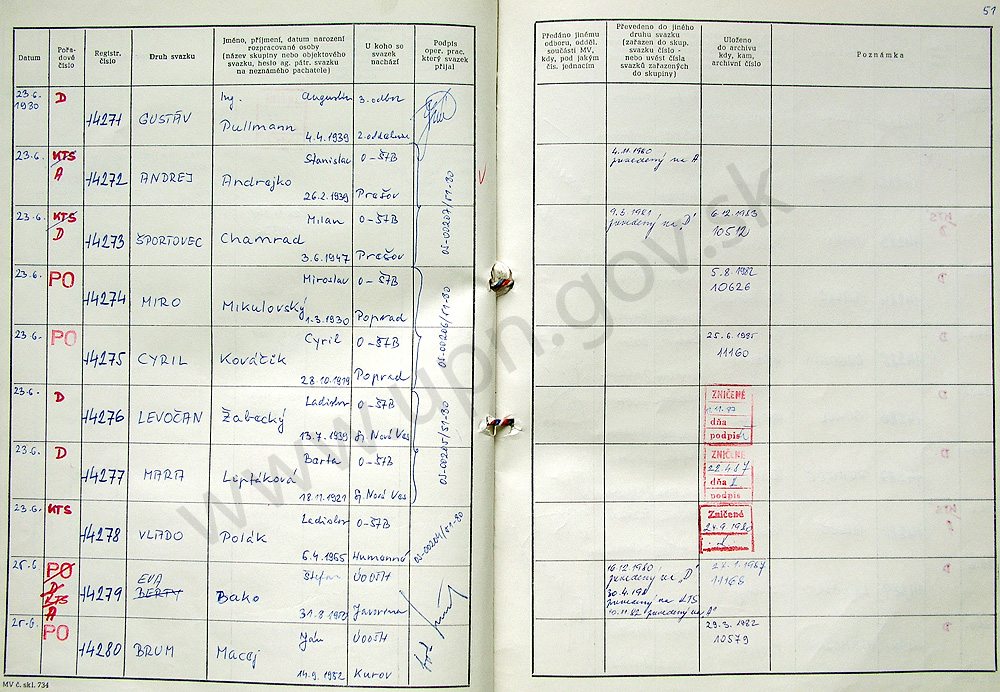 51
Datum
Pořa-
dové
číslo
Registr.
číslo
Druh svazku
Jméno, příjmení, datum narození
rozpracované osoby
(název skupiny nebo objektového
svazku, heslo ag. pátr. svazku
na neznámého pachatele)
U koho se
svazek
nachází
Podpis
oper. prac.
který svazek
přijal
Předáno jinému
odboru, odděl.
součásti MV,
kdy, pod jakým
čís. jednacím
Převedeno do jiného
druhu svazku
(zařazen do skup.
svazku číslo -
nebo uvést čísla
svazků zařazených
do skupiny)
Uloženo
do archivu
kdy, kam,
archivní číslo
Poznámka
23.6.
1980
D
14271
GUSTÁV
Ing. Augustin
Pullmann
4.4.1939
3. odbor
2. oddelenie
23.6.
KTS
A
14272
ANDREJ
Stanislav
Andrejko
26.2.1939
O-ŠTB
Prešov
4.11.1980
prevedený na A
23.6.
KTS
D
14273
ŠPORTOVEC
Milan
Chamrad
3.6.1947
O-ŠTB
Prešov
OS-00207/51-80
9.3.1981
prevedený na "D"
6.12.1983
10512
23.6.
PO
14274
MIRO
Miroslav
Mikulovský
1.3.1930
O-ŠTB
Poprad
5.8.1982
10626
23.6.
PO
14275
CYRIL
Cyril
Kováčik
28.10.1919
O-ŠTB
Poprad
OS-00206/51-80
25.6.1985
11160
23.6.
D
14276
LEVOČAN
Ladislav
Žabecký
13.7.1939
O-ŠTB
Sp. Nová Ves
ZNIČENÉ
dňa
podpis
23.6.
D
14277
MARA
Barta
Liptáková
18.11.1921
O-ŠTB
Sp. Nová Ves
OS-00205/51-80
ZNIČENÉ
dňa
podpis
23.6.
KTS
14278
VLADO
Ladislav
Polák
6.4.1965
O-ŠTB
Humenné
OS-00204/51-80
Zničené
24.9.1980
25.6
PO
D
KTS
A
14279
EVA
BERTY
Štefan
Bako
ÚOOŠTK
16.12.1980
prevedený na "D"
prevedený na KTS
11168
25.6.
PO
14280
BRUM
Ján
Macej
14.9.1952
ÚOOŠTK
Kurov
29.3.1982
10579
MV č. skl. 734
www.upn.gov.sk